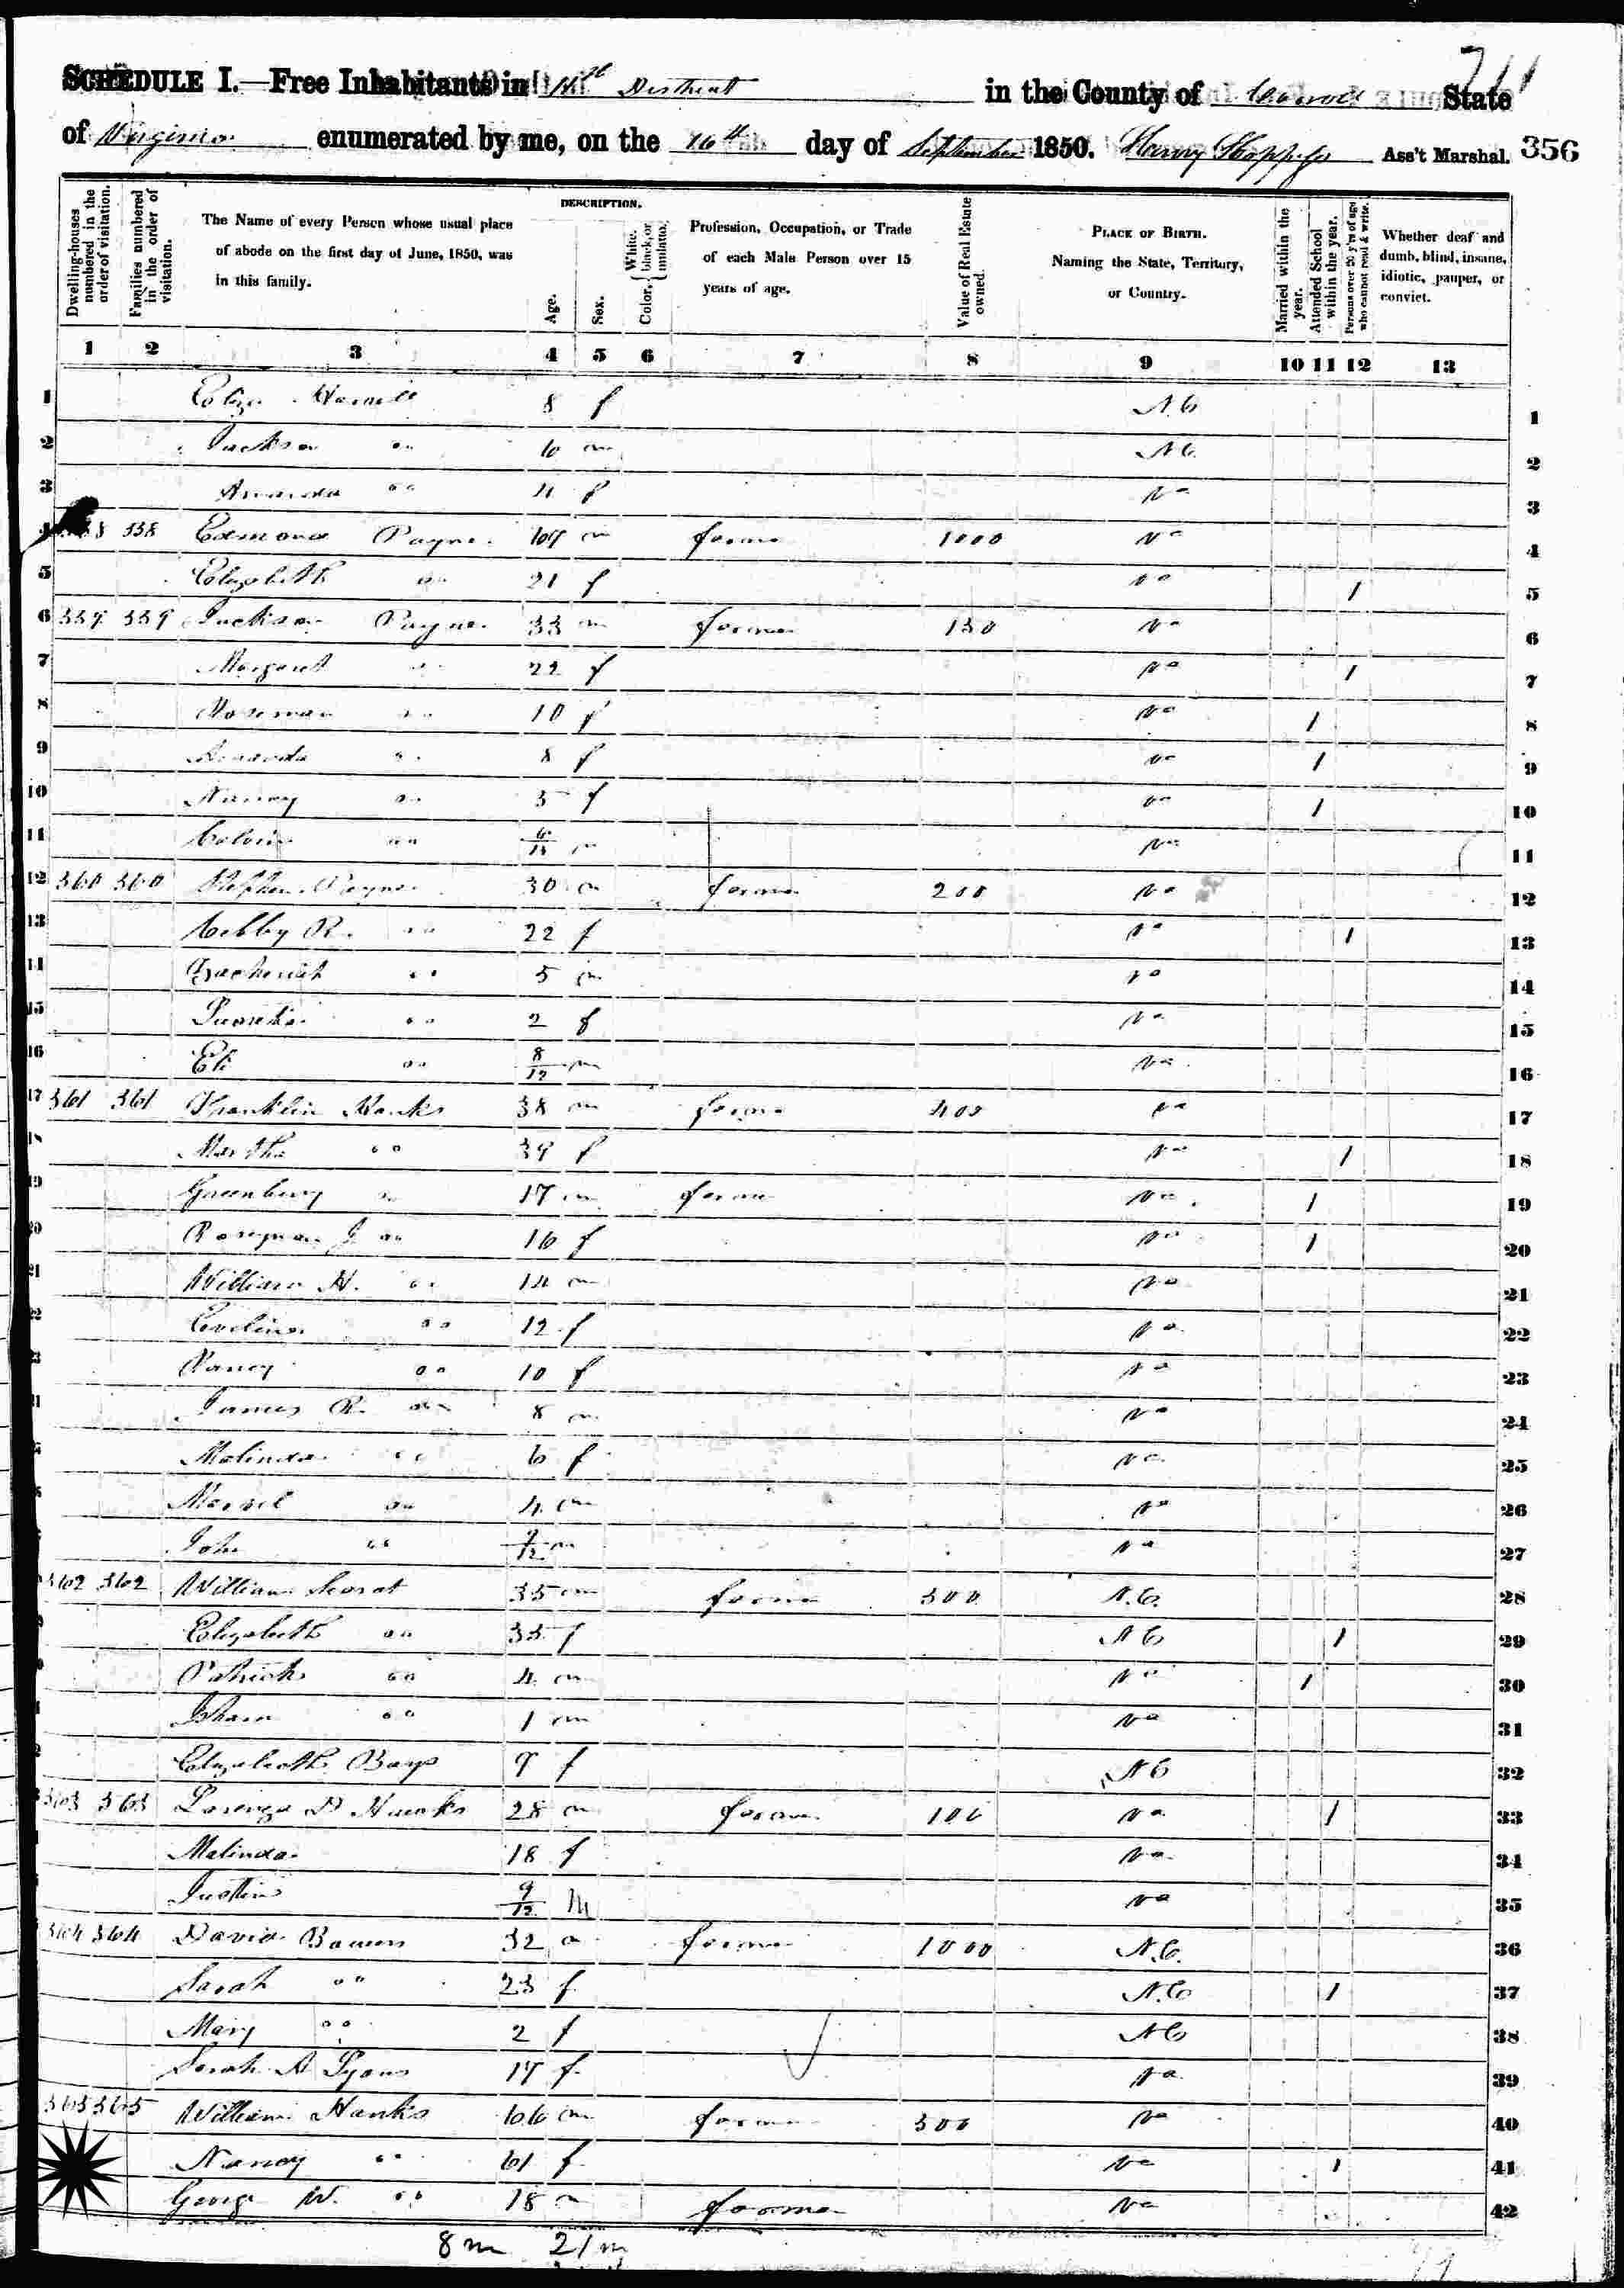 711
SCHEDULE I.—Free Inhabitants in District in the County of Carroll State
of Virginia enumerated by me, on the 16th day of September 1850. Ass't Marshal. 356
Dwelling-houses numbered in the order of visitation.
Families numbered in the order of visitation.
The Name of every Person whose usual place of abode on the first day of June, 1850, was in this family.
DESCRIPTION.
Age.
Sex.
Color, { White, black, or mulatto.
Profession, Occupation, or Trade of each Male Person over 15 years of age.
Value of Real Estate owned.
PLACE OF BIRTH. Naming the State, Territory, or Country.
Married within the year.
Attended School within the year.
Persons over 20 y'rs of age who cannot read & write.
Whether deaf and dumb, blind, insane, idiotic, pauper, or convict.
1 2 3 4 5 6 7 8 9 10 11 12 13
1 8 f N.C 1
2 Jackson " 6 m N C. 2
3 Amanda " 4 f Va 3
4 358 Edmond Payne 69 m farmer 1000 Va 4
5 Elizabeth " 21 f Va / 5
6 359 359 Jackson Payne 33 m farmer 150 Va 6
7 Margaret " 22 f Va / 7
8 Roseman " 10 f Va / 8
9 Amanda " 8 f Va / 9
10 Nancy " 5 f Va / 10
11 " 6/12 m Va 11
12 360 360 Stephen Payne 30 m farmer 200 Va 12
13 R. " 22 f Va / 13
14 Zachariah " 5 m Va 14
15 " 2 f Va 15
16 Eli " 8/12 m Va 16
17 361 361 Franklin Hanks 38 m farmer 400 Va 17
18 Martha " 39 f Va / 18
19 Greenberry " 17 m farmer Va / 19
20 Roseman J " 16 f Va / 20
21 William H. " 14 m Va 21
Evelina " 12 f Va 22
Nancy " 10 f Va 23
James R. " 8 m Va 24
Malinda " 6 f Va 25
" 4 m Va 26
John " /12 m Va 27
362 362 William 35 m farmer 300 N.C. 28
Elizabeth " 35 f N C / 29
Patrick " 4 m Va / 30
Isham " 1 m Va 31
Elizabeth Bays 9 f N C 32
363 363 Lorenzo D Hanks 28 m farmer 100 Va / 33
Malinda 18 f Va 34
9/12 M Va 35
364 364 David Bowen 32 m farmer 1000 N.C. 36
Sarah " 23 f N.C / 37
Mary " 2 f N C 38
Sarah A Lyons 17 f Va 39
365 365 William Hanks 66 m farmer 300 Va 40
Nancy " 61 f Va / 41
George W. " 18 m farmer Va 42
8 m 21 m